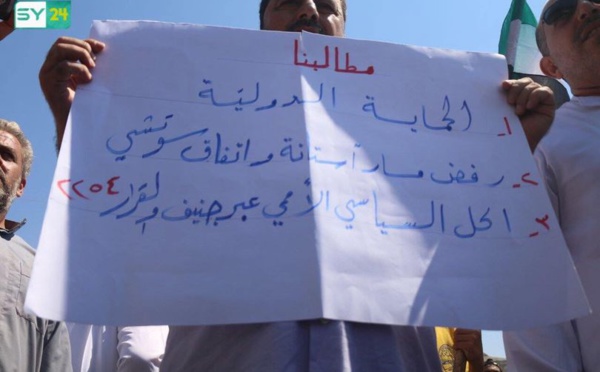 SY 24
مطالبنا
١- الحماية الدولية
٢- رفض مسار آستانة واتفاق سوتشي
٣- الحل السياسي الأممي عبر جنيف والقرار ٢٢٥٤